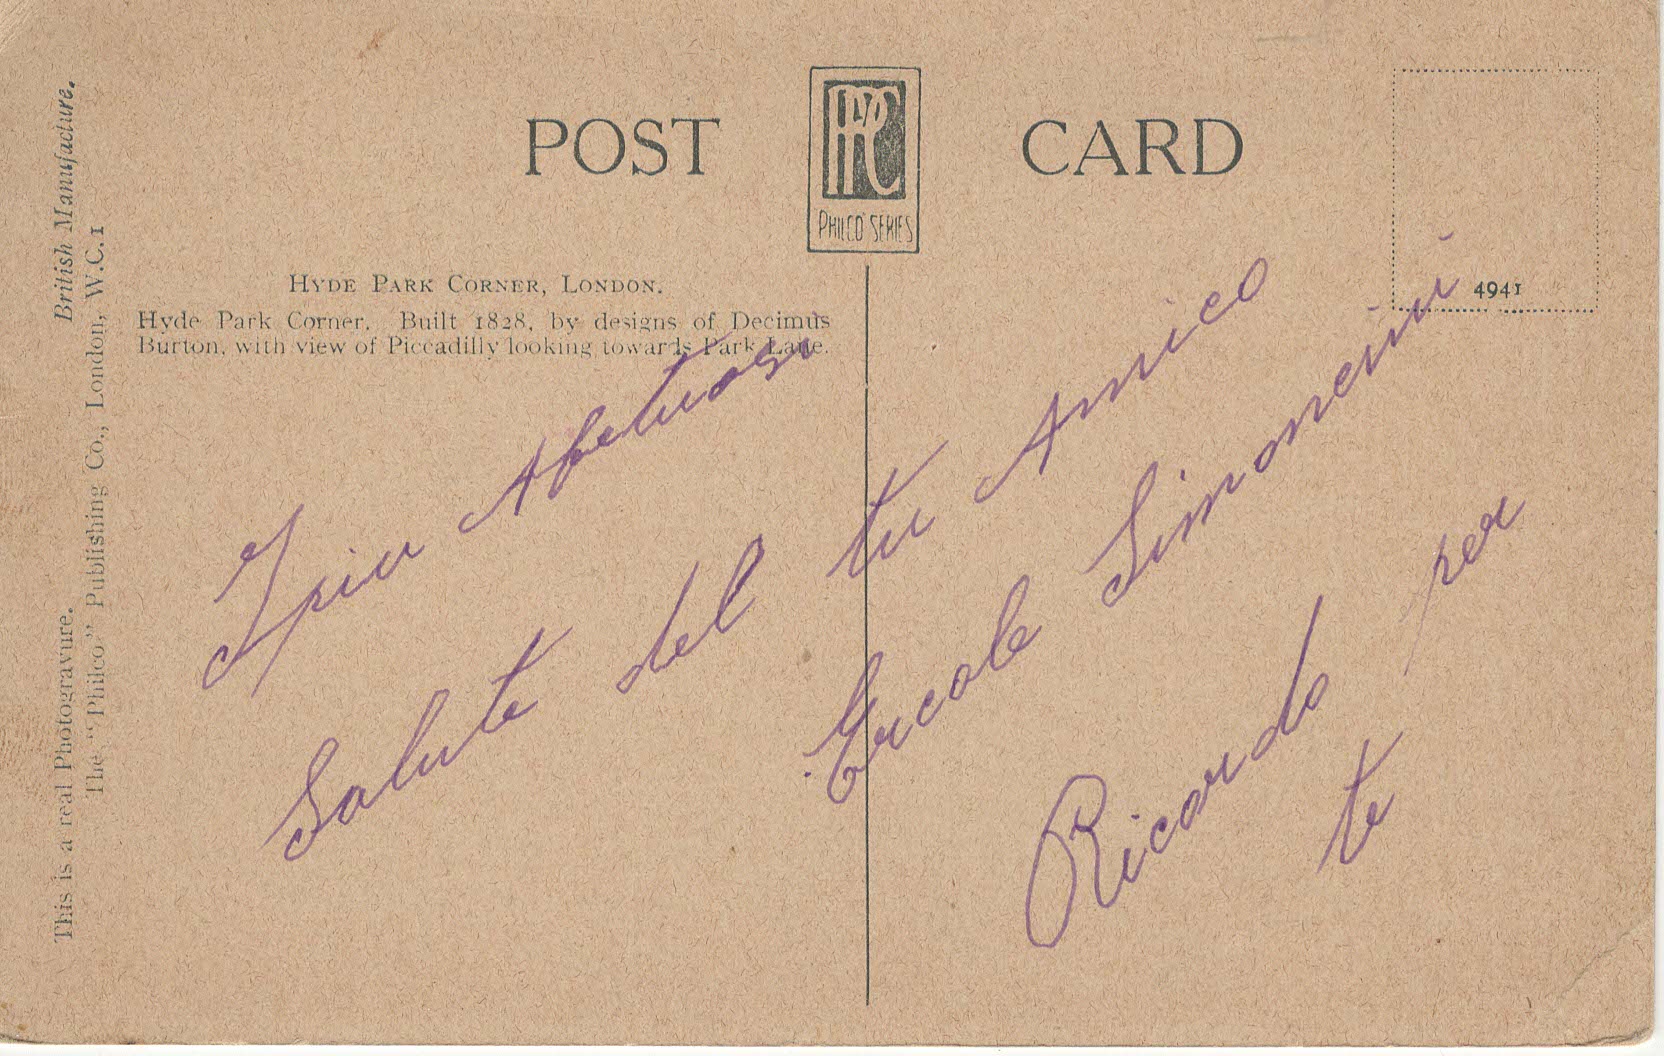 POST CARD
PHILCO SERIES
4941
HYDE PARK CORNER, LONDON.
Hyde Park Corner. Built 1828, by designs of Decimus
Burton, with view of Piccadilly looking towards Park Lane.
British Manufacture.
This is a real Photogravure.
The "Philco" Publishing Co., London, W.C.1
I piu Afetuosi
Salute del tu Amico
Ercole Simoneini
Ricordo per
te